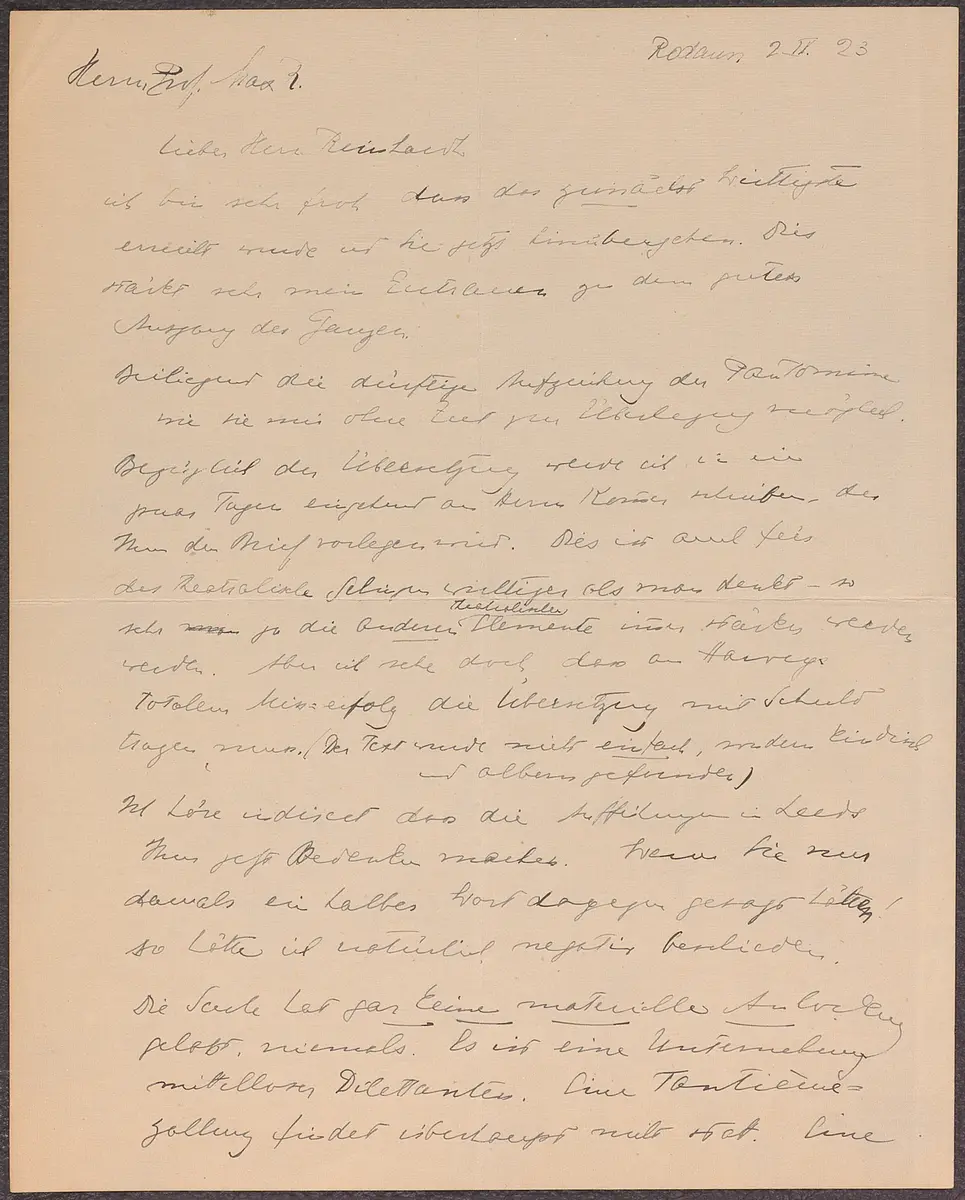 Rodaun, 2 II. 23
Herrn Prof. Max R.
Lieber Herr Reinhardt
ich bin sehr froh dass das zunächst Wichtigste
erreicht wurde und Sie jetzt hinübergehen. Dies
stärkt sehr mein Zutrauen zu dem guten
Ausgang des Ganzen.
Beiliegend die dürftige Aufzeichnung der Pantomime
wie sie mir ohne Zeit zur Überlegung möglich.
Bezüglich der Übersetzung werde ich in ein
paar Tagen eingehend an Herrn Kommer schreiben, der
Ihnen den Brief vorlegen wird. Dies ist auch fürs
das theatralische Gelingen wichtiger als man denkt – so
sehr ja die anderen theatralischen Elemente immer stärker werden
werden. Aber ich sehe doch, dass an
totalem Mis=erfolg die Übersetzung mit Schuld
tragen muss. (Der Text wurde nicht einfach, sondern kindisch
und albern gefunden)
Ich höre indirect dass die Aufführungen in Leeds
Ihnen jetzt Bedenken machen. Wenn Sie mir
damals ein halbes Wort dagegen gesagt hätten!
so hätte ich natürlich negativ beschieden.
Die Sache hat gar keine materielle Anlockung
gehabt, niemals. Es ist eine Unternehmung
mittelloser Dilettanten. Eine Tantième=
zallung findet überhaupt nicht statt. Eine